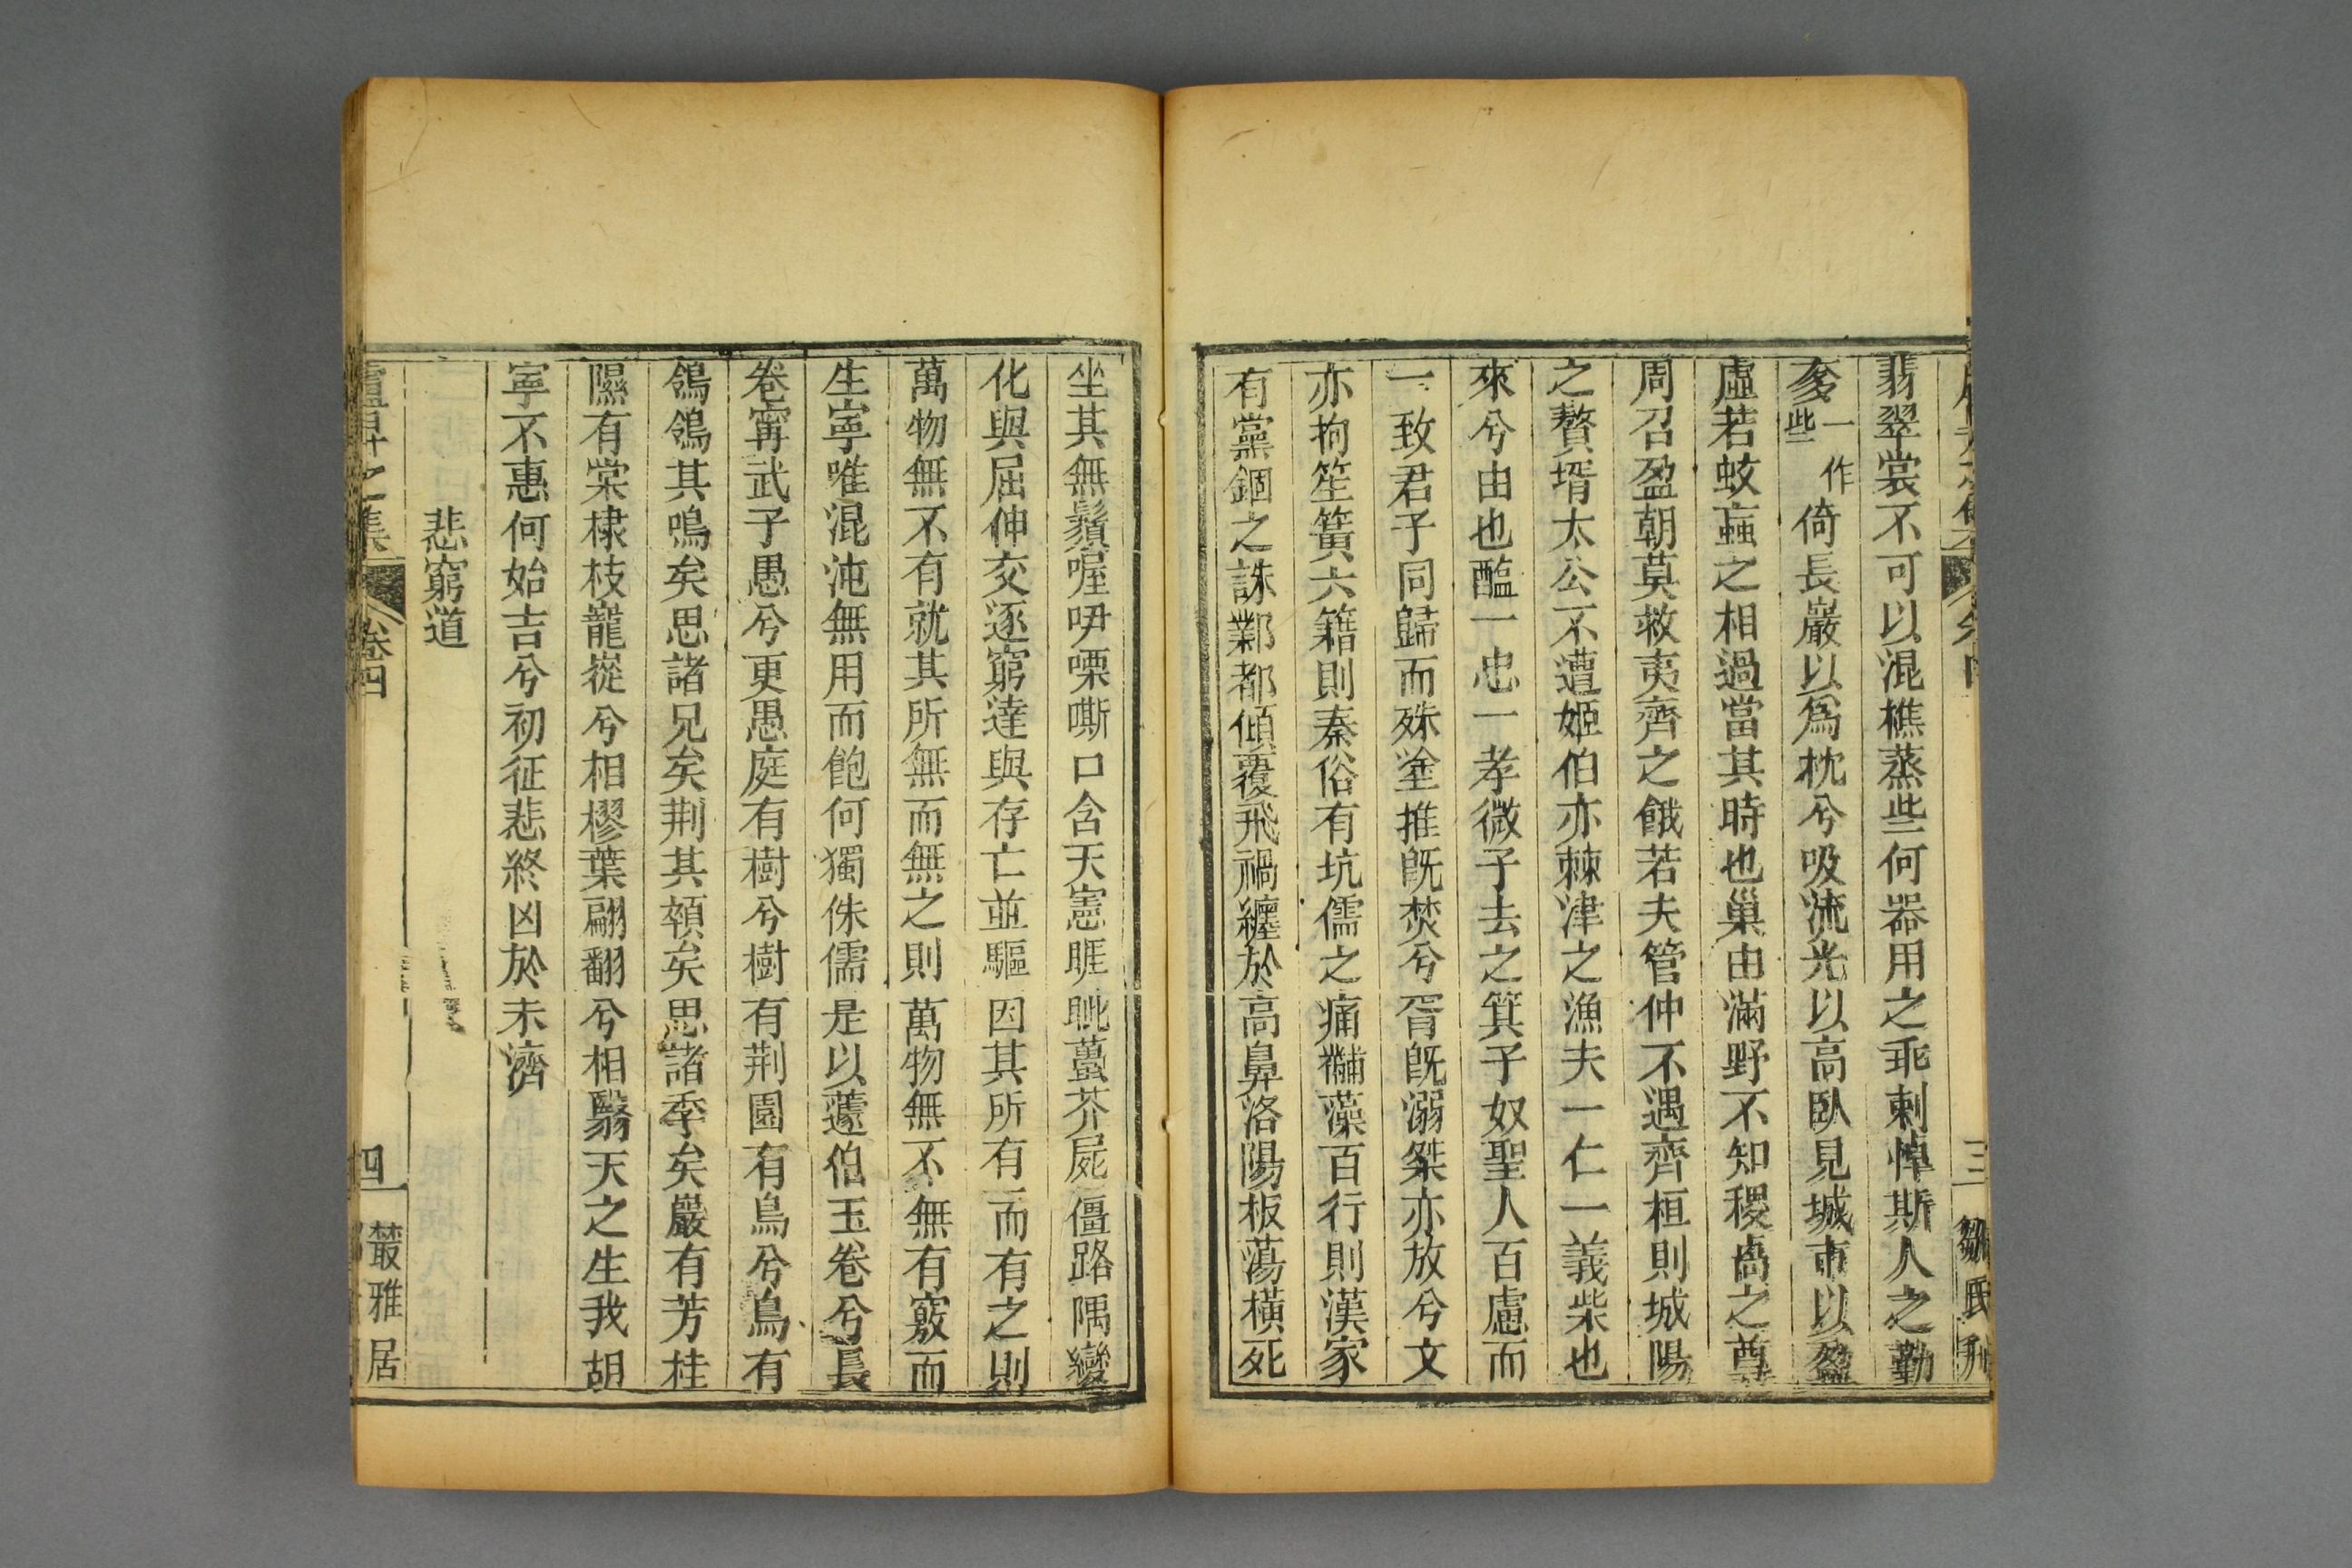 翡翠裳不可以混樵蒸些何器用之乖剌悼斯人之勤
㚇一作些倚長巖以爲枕兮吸流光以高臥見城市以盈
虛若蚊蝱之相過當其時也巢由滿野不知稷卨之尊
周召盈朝莫救夷齊之餓若夫管仲不遇齊桓則城陽
之贅壻太公不遭姬伯亦棘津之漁夫一仁一義柴也
來兮由也醢一忠一孝微子去之箕子奴聖人百慮而
一致君子同歸而殊塗推旣焚兮胥旣溺桀亦放兮文
亦拘笙簧六籍則秦俗有坑儒之痛黼藻百行則漢家
有黨錮之誅鄴都傾覆飛禍纏於高鼻洛陽板蕩橫死
坐其無鬚喔吚嚅嘶口含天憲睚眦蠆芥屍僵路隅變
化與屈伸交逐窮達與存亡並驅因其所有而有之則
萬物無不有就其所無而無之則萬物無不無有竅而
生寧唯混沌無用而飽何獨侏儒是以蘧伯玉卷兮長
卷甯武子愚兮更愚庭有樹兮樹有荆園有鳥兮鳥有
鴒鴒其鳴矣思諸兄矣荆其頟矣思諸季矣巖有芳桂
隰有棠棣枝巃嵸兮相樛葉翩翻兮相翳天之生我胡
寧不惠何始吉兮初征悲終凶於未濟
悲窮道
盧昇之集 卷四 四 叢雅居
三 鄒氏刋